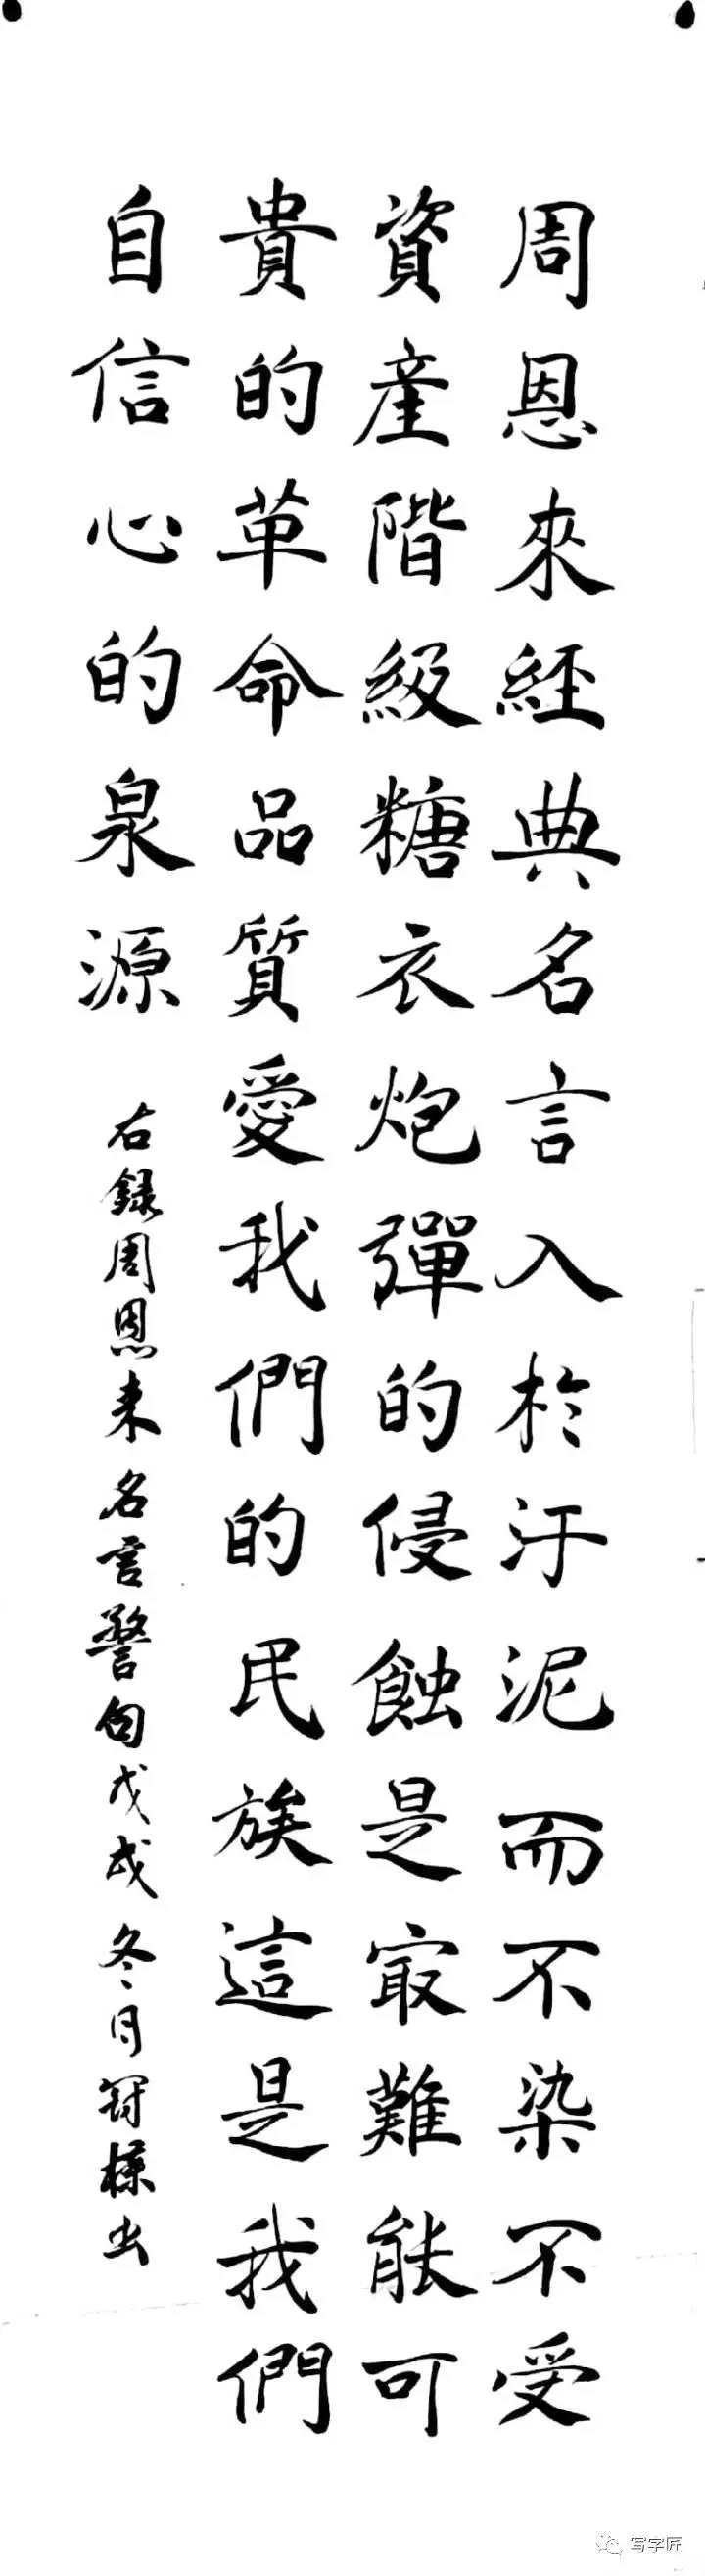 周恩來經典名言入於汙泥而不染不受
資產階級糖衣炮彈的侵蝕是㝡難能可
貴的革命品質愛我們的民族這是我們
自信心的泉源
右録周恩来名言警句戊戌冬月书
写字匠